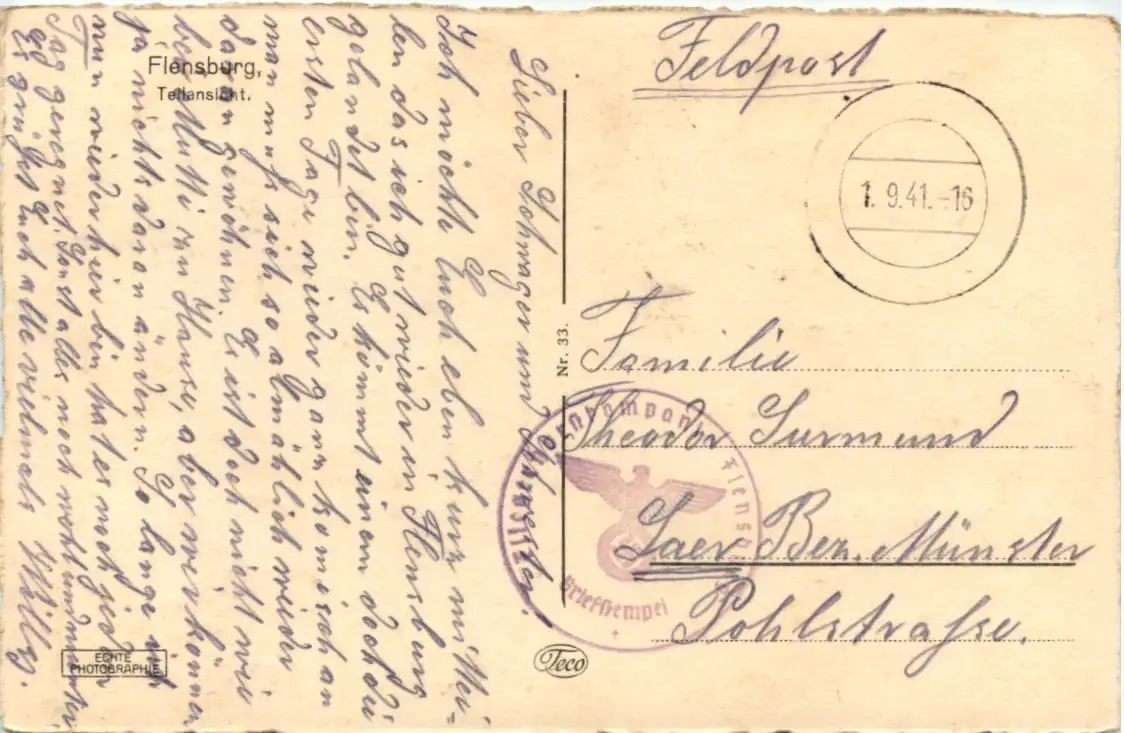 Feldpost
1. 9.41.-16
Flensburg,
Teilansicht.
Lieber Schwager und Schwester.
Ich möchte Euch eben kurz mittei-
len das ich gut wieder in Flensburg
gelandet bin. Es kommt einem doch die
ersten Tage wieder ganz komisch an
man muß sich so almählich wieder
daran gewöhnen. Es ist doch nicht wie
bei Mutti zu Hause, aber wir können
ja nichts daran ändern. So lange ich
nun wieder hier bin hat es noch jeden
Tag geregnet. Sonst alles noch wohl und munter
Es grüßet Euch alle vielmals Willy.
Nr. 33.
Familie
Theodor Surmund
Laer Bez. Münster
Pohlstraße.
kompanie Flensb
Briefstempel
ECHTE
PHOTOGRAPHIE
Teco